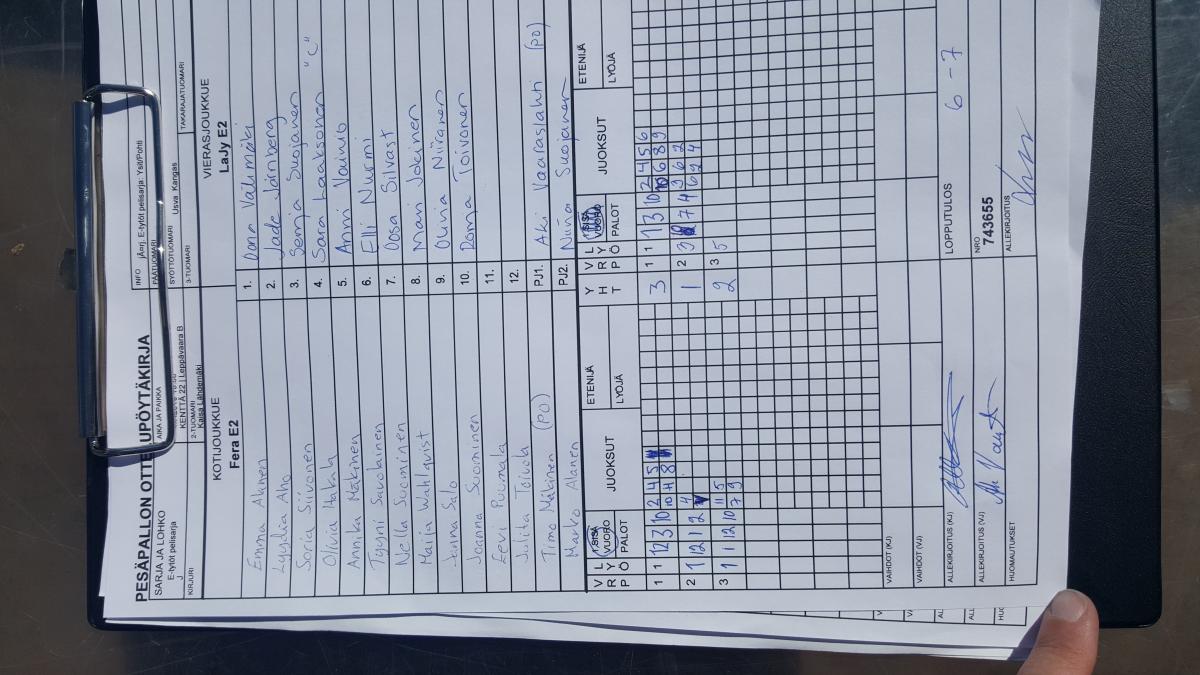 PESÄPALLON OTTELUPÖYTÄKIRJA
SARJA JA LOHKO
E-tytöt pelisarja
J
KIRJURI
AIKA JA PAIKKA
KENTTÄ 22 | Leppävaara B
2-TUOMARI
Kaisa Lähdemäki
INFO jAorj. E-tytöt pelisarja: Ysit/Pohti
PÄÄTUOMARI
SYÖTTÖTUOMARI
Usva Kangas
3-TUOMARI
TAKARAJATUOMARI
KOTIJOUKKUE
Fera E2
VIERASJOUKKUE
LaJy E2
Emma Ahonen 1. Oona Välimäki
Lyydia Aho 2. Jade Jörnberg
Sonja Siivonen 3. Semja Suojanen
Olivia Hakala 4. Sara Laaksonen "C"
Annika Mäkinen 5. Anni Vainio
Tyyni Savolainen 6. Elli Nurmi
Nella Suominen 7. Oosa Silvast
Marja Wahlqvist 8. Mari Jokinen
Jenna Salo 9. Olivia Niiranen
Joanna Suominen 10. Ronja Toivonen
Eevi Puumala 11.
Juliha Toivola 12.
Timo Mäkinen (PO) PJ1. Aki Vaaraslahti (PO)
Marko Alanen PJ2. Niina Suojanen
V R P L Y Ö 1.SISÄ VUORO PALOT JUOKSUT ETENIJÄ LYÖJÄ Y H T V R P L Y Ö SISÄ VUORO PALOT JUOKSUT ETENIJÄ LYÖJÄ
1 1 12 3 10 2 4 5 3 1 1 3 10 2 4 5 6
10 11 8 10 6 8 9
2 1 12 1 2 4 1 2 3 7 4 3 6 2
6 2 4
3 1 1 12 10 11 5 2 3 5
7 9
VAIHDOT (KJ)
VAIHDOT (VJ)
ALLEKIRJOITUS (KJ)
LOPPUTULOS 6 - 7
ALLEKIRJOITUS (VJ)
NRO
743655
HUOMAUTUKSET
ALLEKIRJOITUS